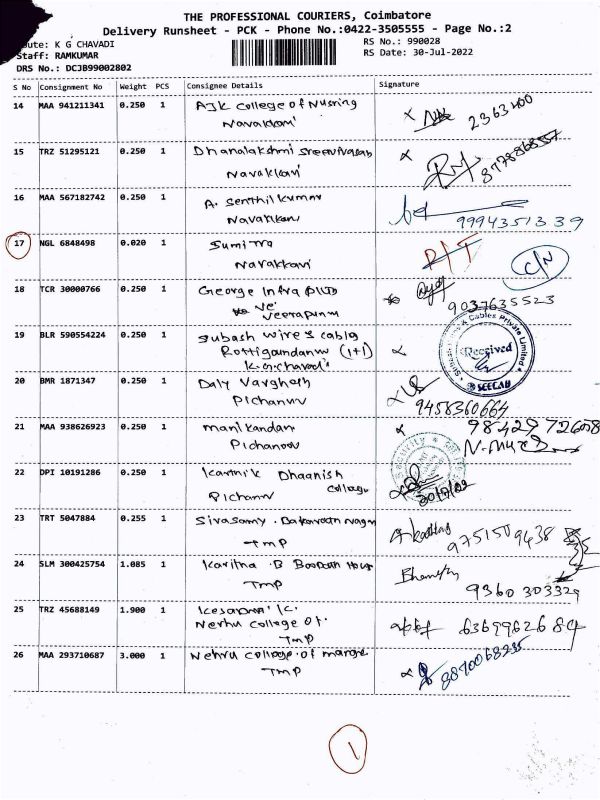 THE PROFESSIONAL COURIERS, Coimbatore
Delivery Runsheet - PCK - Phone No.:0422-3505555 - Page No.:2
ute: K G CHAVADI
RS No.: 990028
Staff: RAMKUMAR
RS Date: 30-Jul-2022
DRS No.: DCJB99002802
S No Consignment No Weight PCS Consignee Details Signature
14 MAA 941211341 0.250 1 AJK College of Nusring
Navakkani
2363400
15 TRZ 51295121 0.250 1 Dhanalakshmi Sreenivasan
Navakkani
16 MAA 567182742 0.250 1 A. Senthilkumar
Navakkani
9994351339
17 NGL 6848498 0.020 1 Sumitra
Navakkani
C/N
18 TCR 30000766 0.250 1 George Infra
9037635523
19 BLR 590554224 0.250 1 Subash wires cable
(1+1)
K.G.chavadi
Received
SEECAB
20 BMR 1871347 0.250 1 Daly Varghese
Pichanur
9458360664
21 MAA 938626923 0.250 1 manikandan
Pichanoor
22 DPI 10191286 0.250 1 Karthik Dhaanish
college
Pichanur
Security
23 TRT 5047884 0.255 1 Sivasamy
TMP
24 SLM 300425754 1.085 1
TMP
9360303329
25 TRZ 45688149 1.900 1
Nerhu college of.
TMP
6369962684
26 MAA 293710687 3.000 1 Nehru college of
TMP
8870068235
1